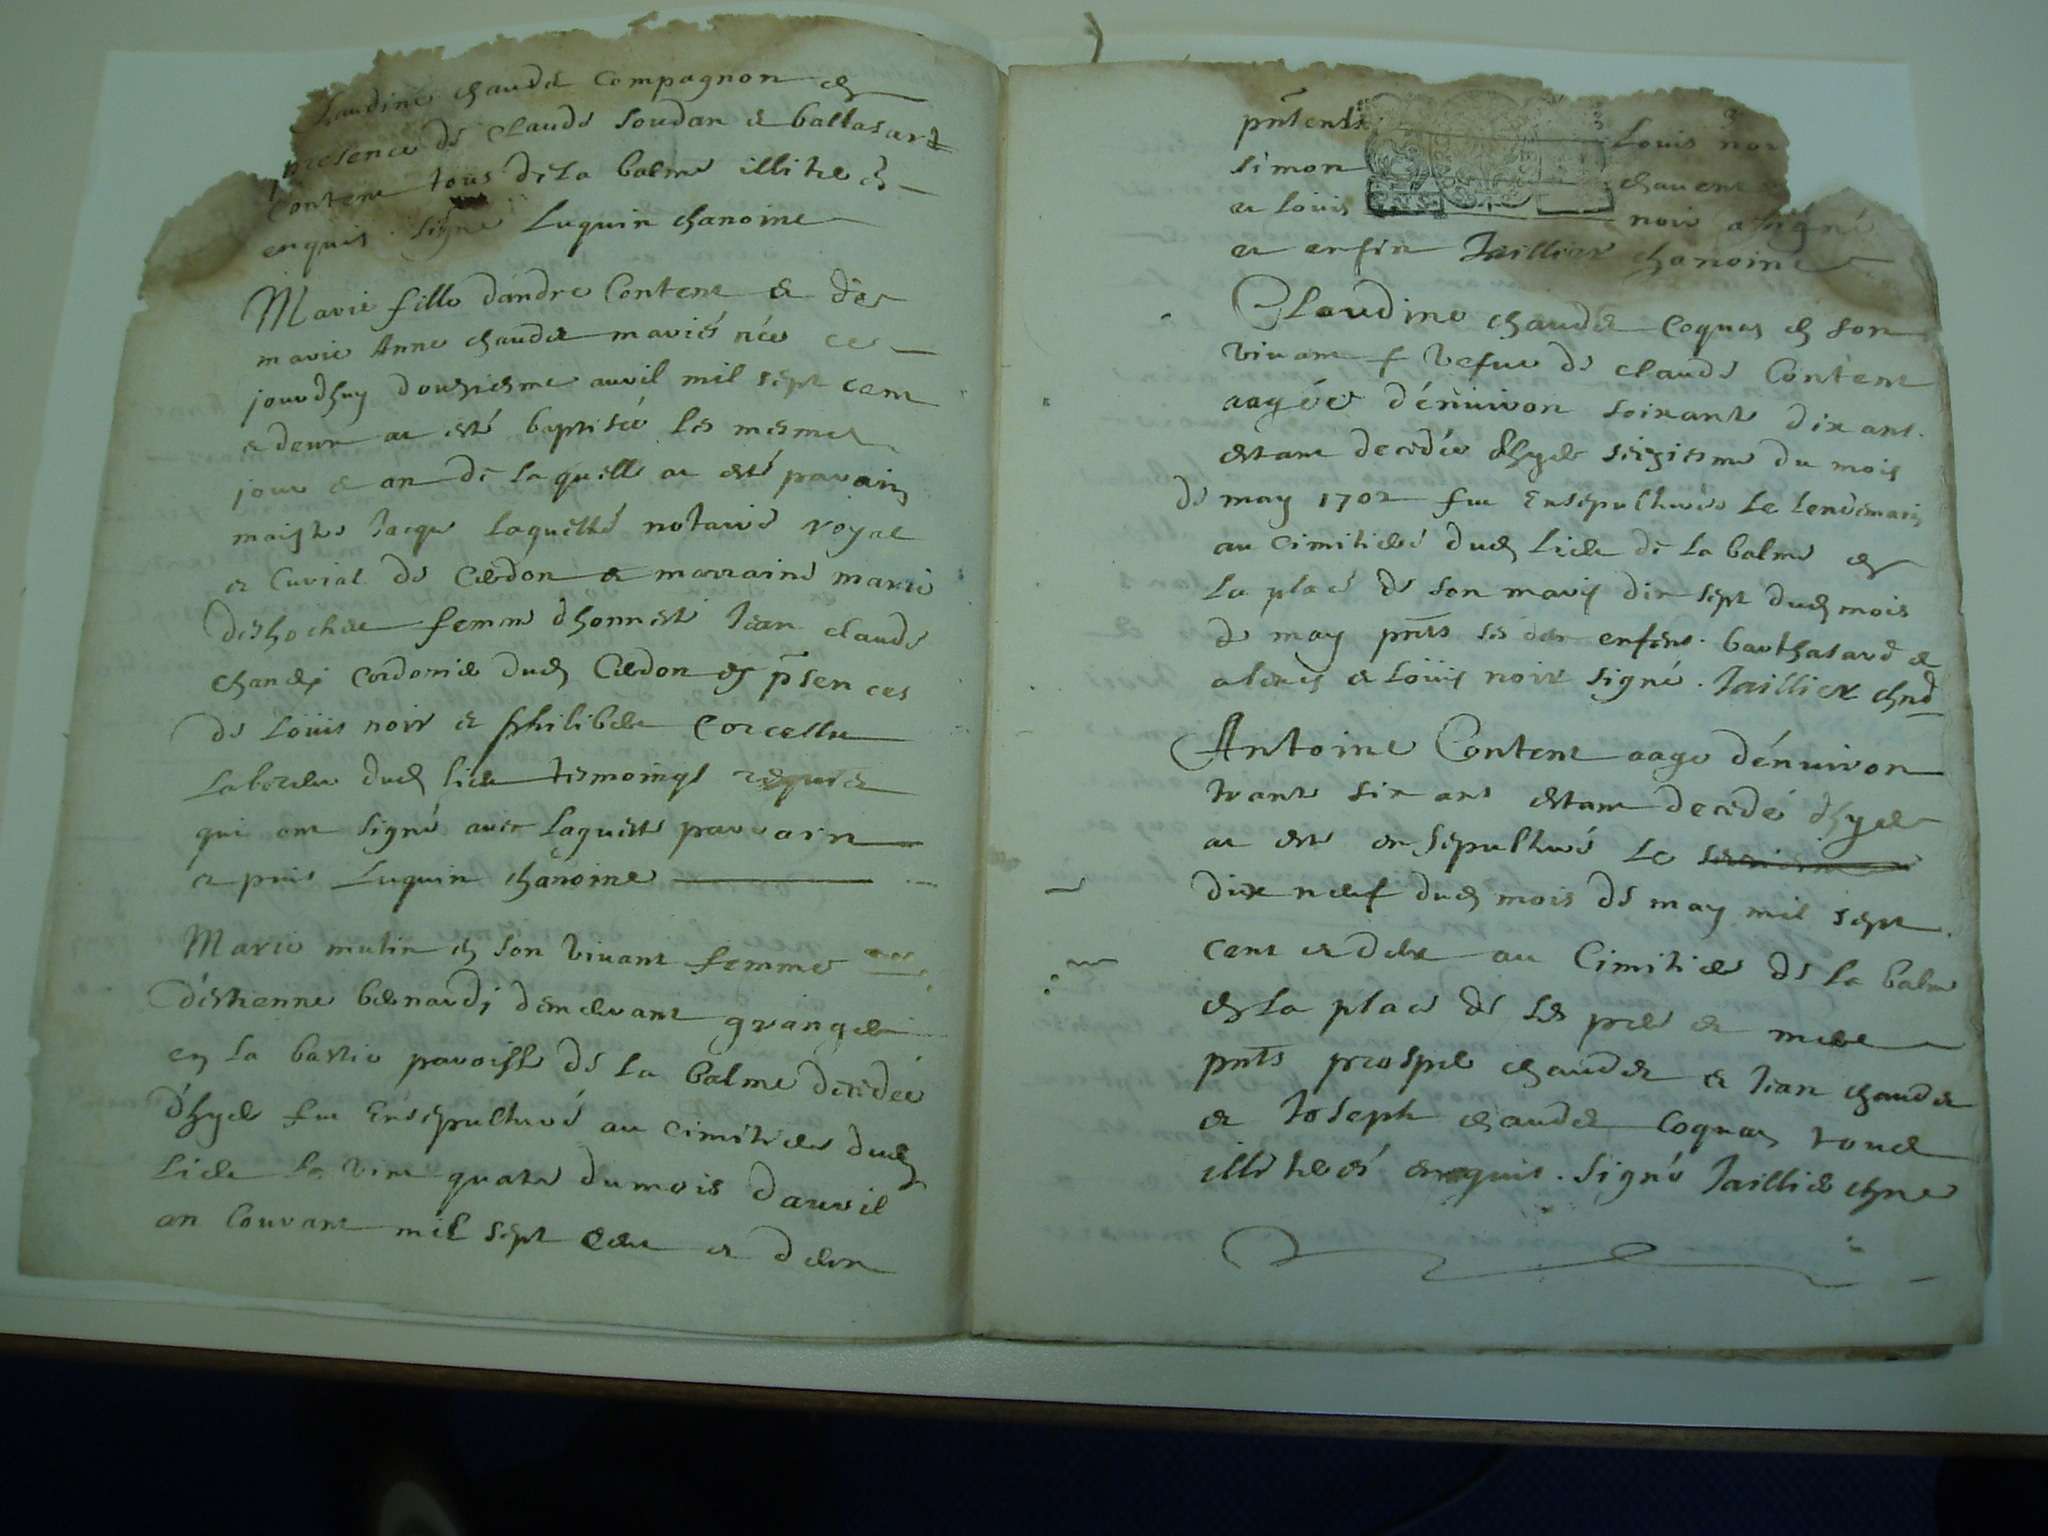 Claudine chaudet Compagnon en
presence de Claude soudan et baltasard
Content tous de la balme illitrés
enquis signé Luquin chanoine
Marie fille dandre Content et de
marie Anne chaudet mariés née ce
jourdhuy douziesme auril mil sept cent
et deux at esté baptisée les mesmes
jour et an de laquelle at esté parain
maistre Jacque Laquette notaire royal
et Curial de Cerdon et marraine marie
femme dhonneste Jean claude
Cordonier dud Cerdon es psences
de Louis noir et philibert Corcelle
Laboreur dud lieu tesmoings requis
qui ont signé avec Laquette parrain
et puis Luquin chanoine
Marie mutin en son vivant femme
d'estienne bernardy demeurant granger
en la bastie paroisse de la balme decedée
d'hyer fut Ensepulturé au cimitier dud
Lieu le vint quatre du mois dauril
an Courant mil sept cent et deux
pntents Louis noir
simon chauent
et Louis noir a signé
et enfin Jaillier chanoine
Claudine chaudet Coquas en son
vivant f vefue de claude Content
aagée d'enuiron soixante dix ans.
estant decedée d'hyer seiziesme du mois
de may 1702 fut Ensepulturée Le lendemain
au cimitier dud Lieu de la balme en
La place de son mary dix sept dud mois
de may pnts ses enfens. barthasard et
alexis et Louis noir signé. Jaillier chne
Antoine Content aagé d'enuiron
trante six ans estant decedé d'hyer
at esté ensepulturé Le
dix neuf dud mois de may mil sept
cent et deux au Cimitier de la balme
en la place de ses pere et mere
pnts prosper chaudet et Jean chaudet
et Joseph chaudet Coquas
illitrés enquis. Signé Jaillier chne